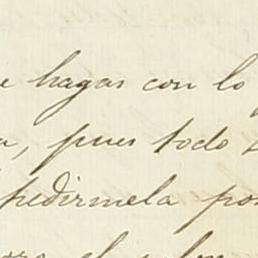 e hagas con lo
, pues todo
pedirmela por
el